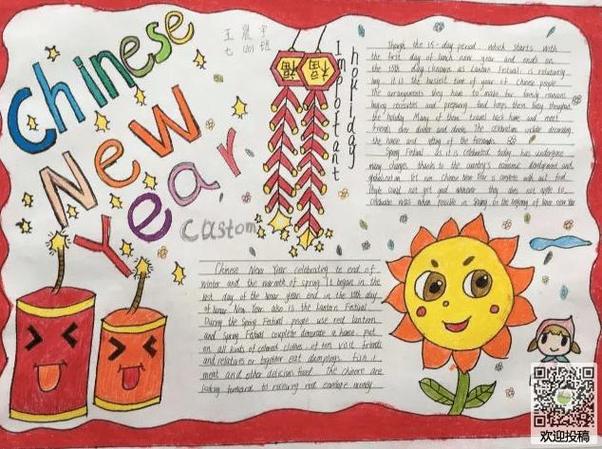 Chinese
New
Year
王晨宇
七四班
福
福
Important
houliday
Though the 15-day period which starts with
the first day of lunch new year and ends on
the 15th day (known as Lantan Festival) is relatively
it is the busiest time of year of Chinese people.
The arrangements they have to make for family reunions
buying necessities and preparing food keeps them busy throughout
the holiday. Many of them travel back home and meet
friends over dinner and drinks. The celebration include decorating
the house and of the fireworks.
Spring Festival as it is celebrated today has undergone
many changes thanks to the country's economic development and
Chinese New Year is complete with out
custom
Chinese New Year celebrating to end of
winter and the warmth of spring. It began in the
last day of the lunar year, end in the 15th day
of lunar New Year, also is the Lantern Festival.
During the Spring Festival, people use red lantern
and Spring Festival couplets decorate a home, put
on all kinds of colored clothes, often visit friends
and relatives or together eat dumplings, fish,
meat and other delicious food. The Chinese are
looking forward to receiving red money
欢迎投稿